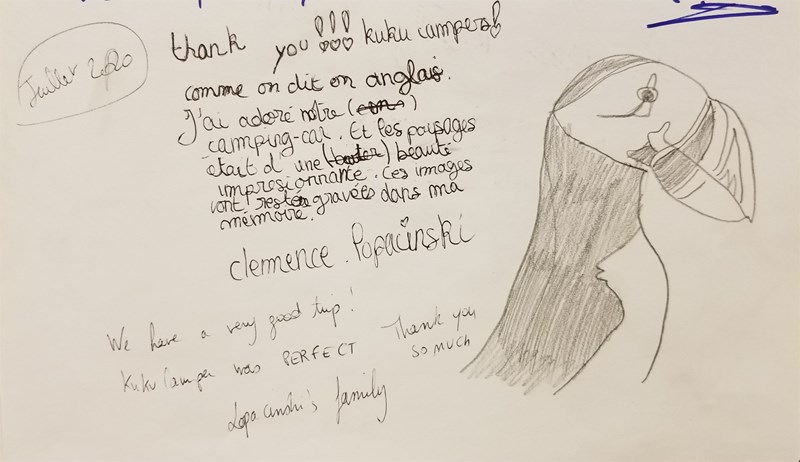 Juillet 2020
thank you !!! kuku campers!
comme on dit en anglais.
J'ai adoré notre ( )
camping-car. Et les paysages
était d'une ( ) beauté
impresionnante. Ces images
vont restée gravées dans ma
mémoire.
clemence. Lopacinski
We have a very good trip!
Kuku Camper was PERFECT
Thank you
so much
Lopacinski's family